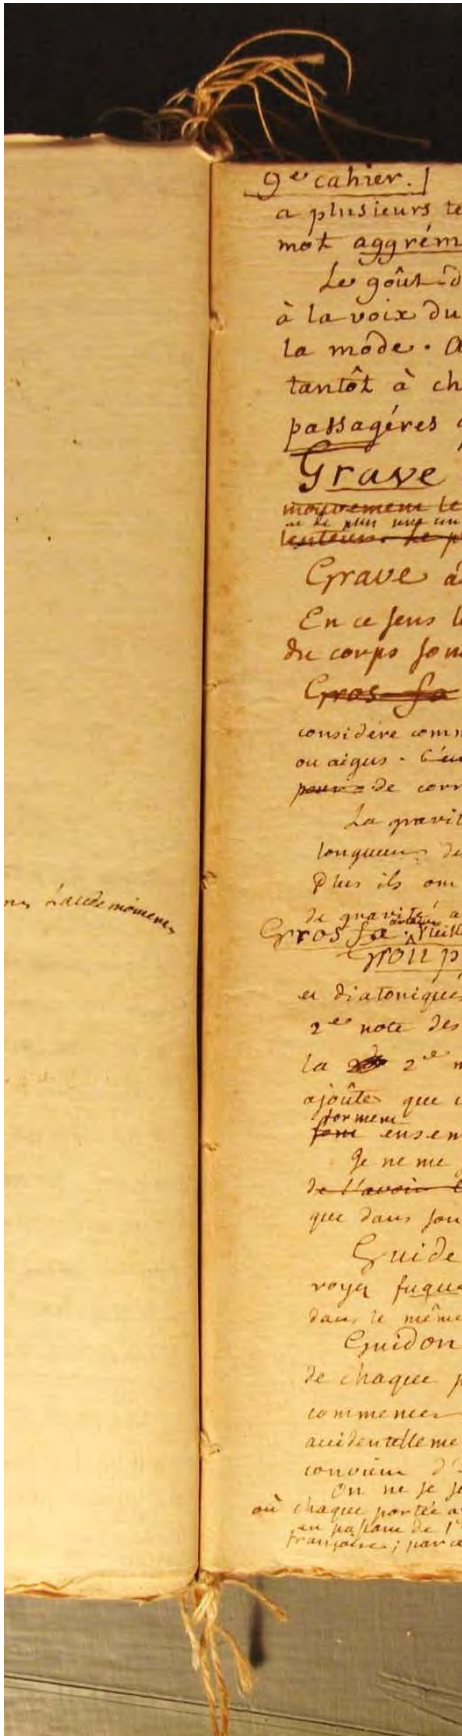 9e cahier.
a plusieurs te
mot aggrém
Le goût d
à la voix du
la mode. a
tantôt à ch
passagéres
Grave
mouvement le
et de plus
lenteur. Le p
Grave a
En ce sens l
du corps son
Gros fa
considéré comm
ou aigus.
de corr
La gravit
longueur de
Plus ils ont
de gravité a
Gros fa. Vieill
et diatoniques
2e note des
la 2e n
ajoûte que
forment
font ensem
Je ne me
de l'avoir
que dans son
Guide
voyez fugue
dans le même
Guidon
de chaque p
commencer
accidentelleme
convient d'
On ne se se
où chaque portée a
en parlant de l'
françoise; par ce